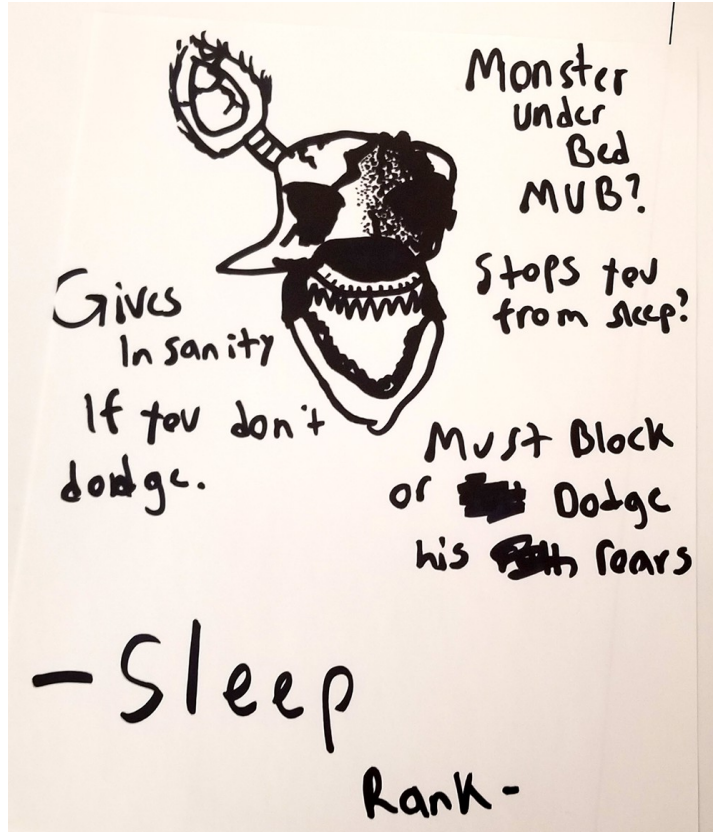 Monster
under
Bed
MUB?
Stops you
from sleep?
Gives
Insanity
If you don't
dodge.
Must Block
or Dodge
his roars
- Sleep
Rank -